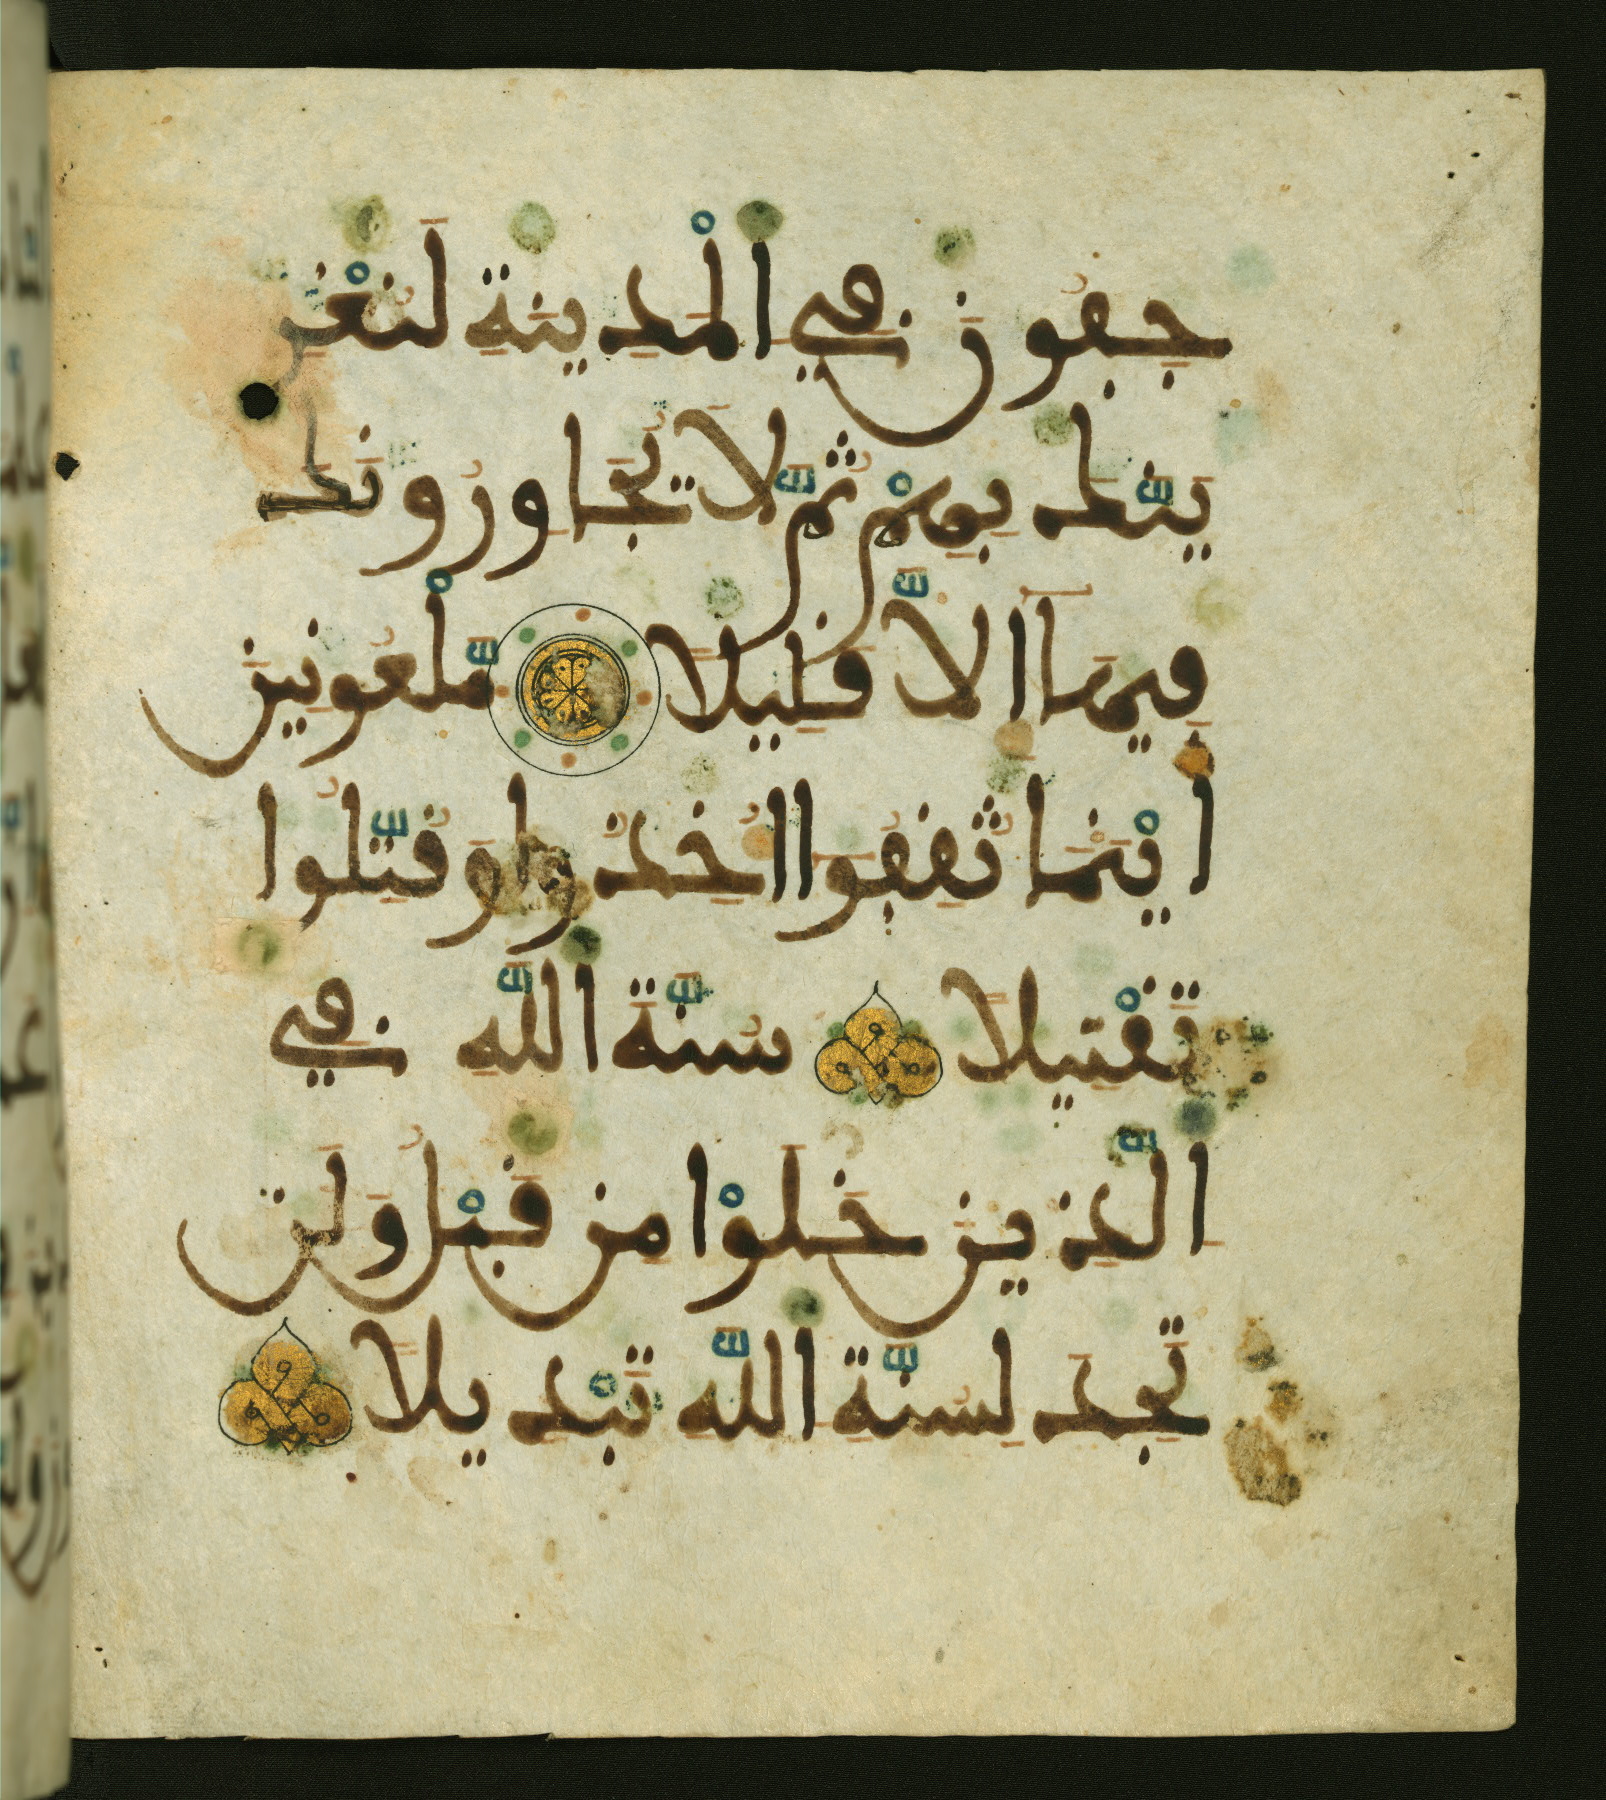 جِفُونَ فِي الْمَدِينَةِ لَنُغْرِ
يَنَّكَ بِهِمْ ثُمَّ لَا يُجَاوِرُونَكَ
فِيهَا إِلَّا قَلِيلًا مَّلْعُونِينَ
أَيْنَمَا ثُقِفُوا أُخِذُوا وَقُتِّلُوا
تَقْتِيلًا سُنَّةَ اللَّهِ فِي
الَّذِينَ خَلَوْا مِن قَبْلُ وَلَن
تَجِدَ لِسُنَّةِ اللَّهِ تَبْدِيلًا